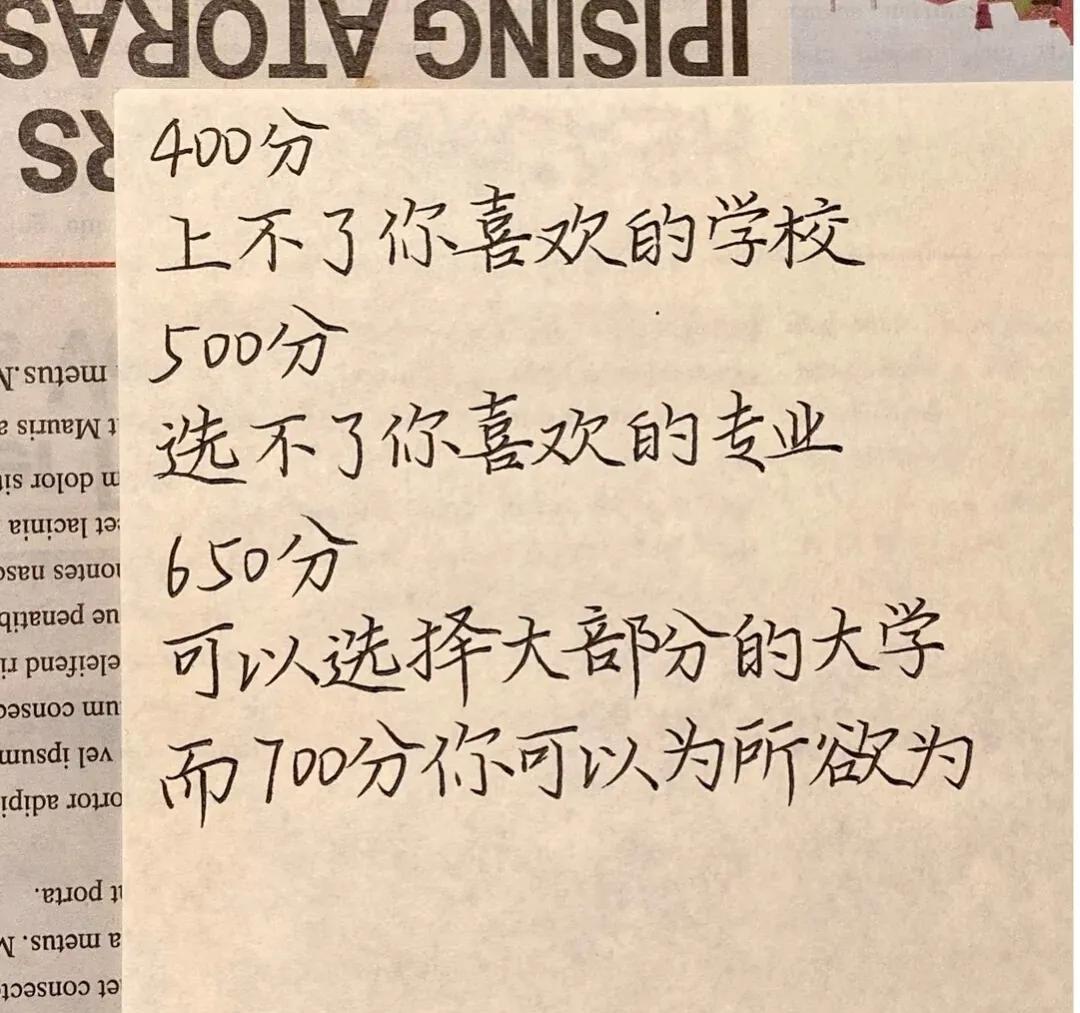 IPISING ATORAS
RS
400分
上不了你喜欢的学校
500分
选不了你喜欢的专业
650分
可以选择大部分的大学
而700分你可以为所欲为
metus.N
t Mauris a
m dolor sit
et lacinia
montes nasc
ue penatib
eleifend ri
um consec
vel ipsum
ortor adipi
t porta.
a metus. M
et consect